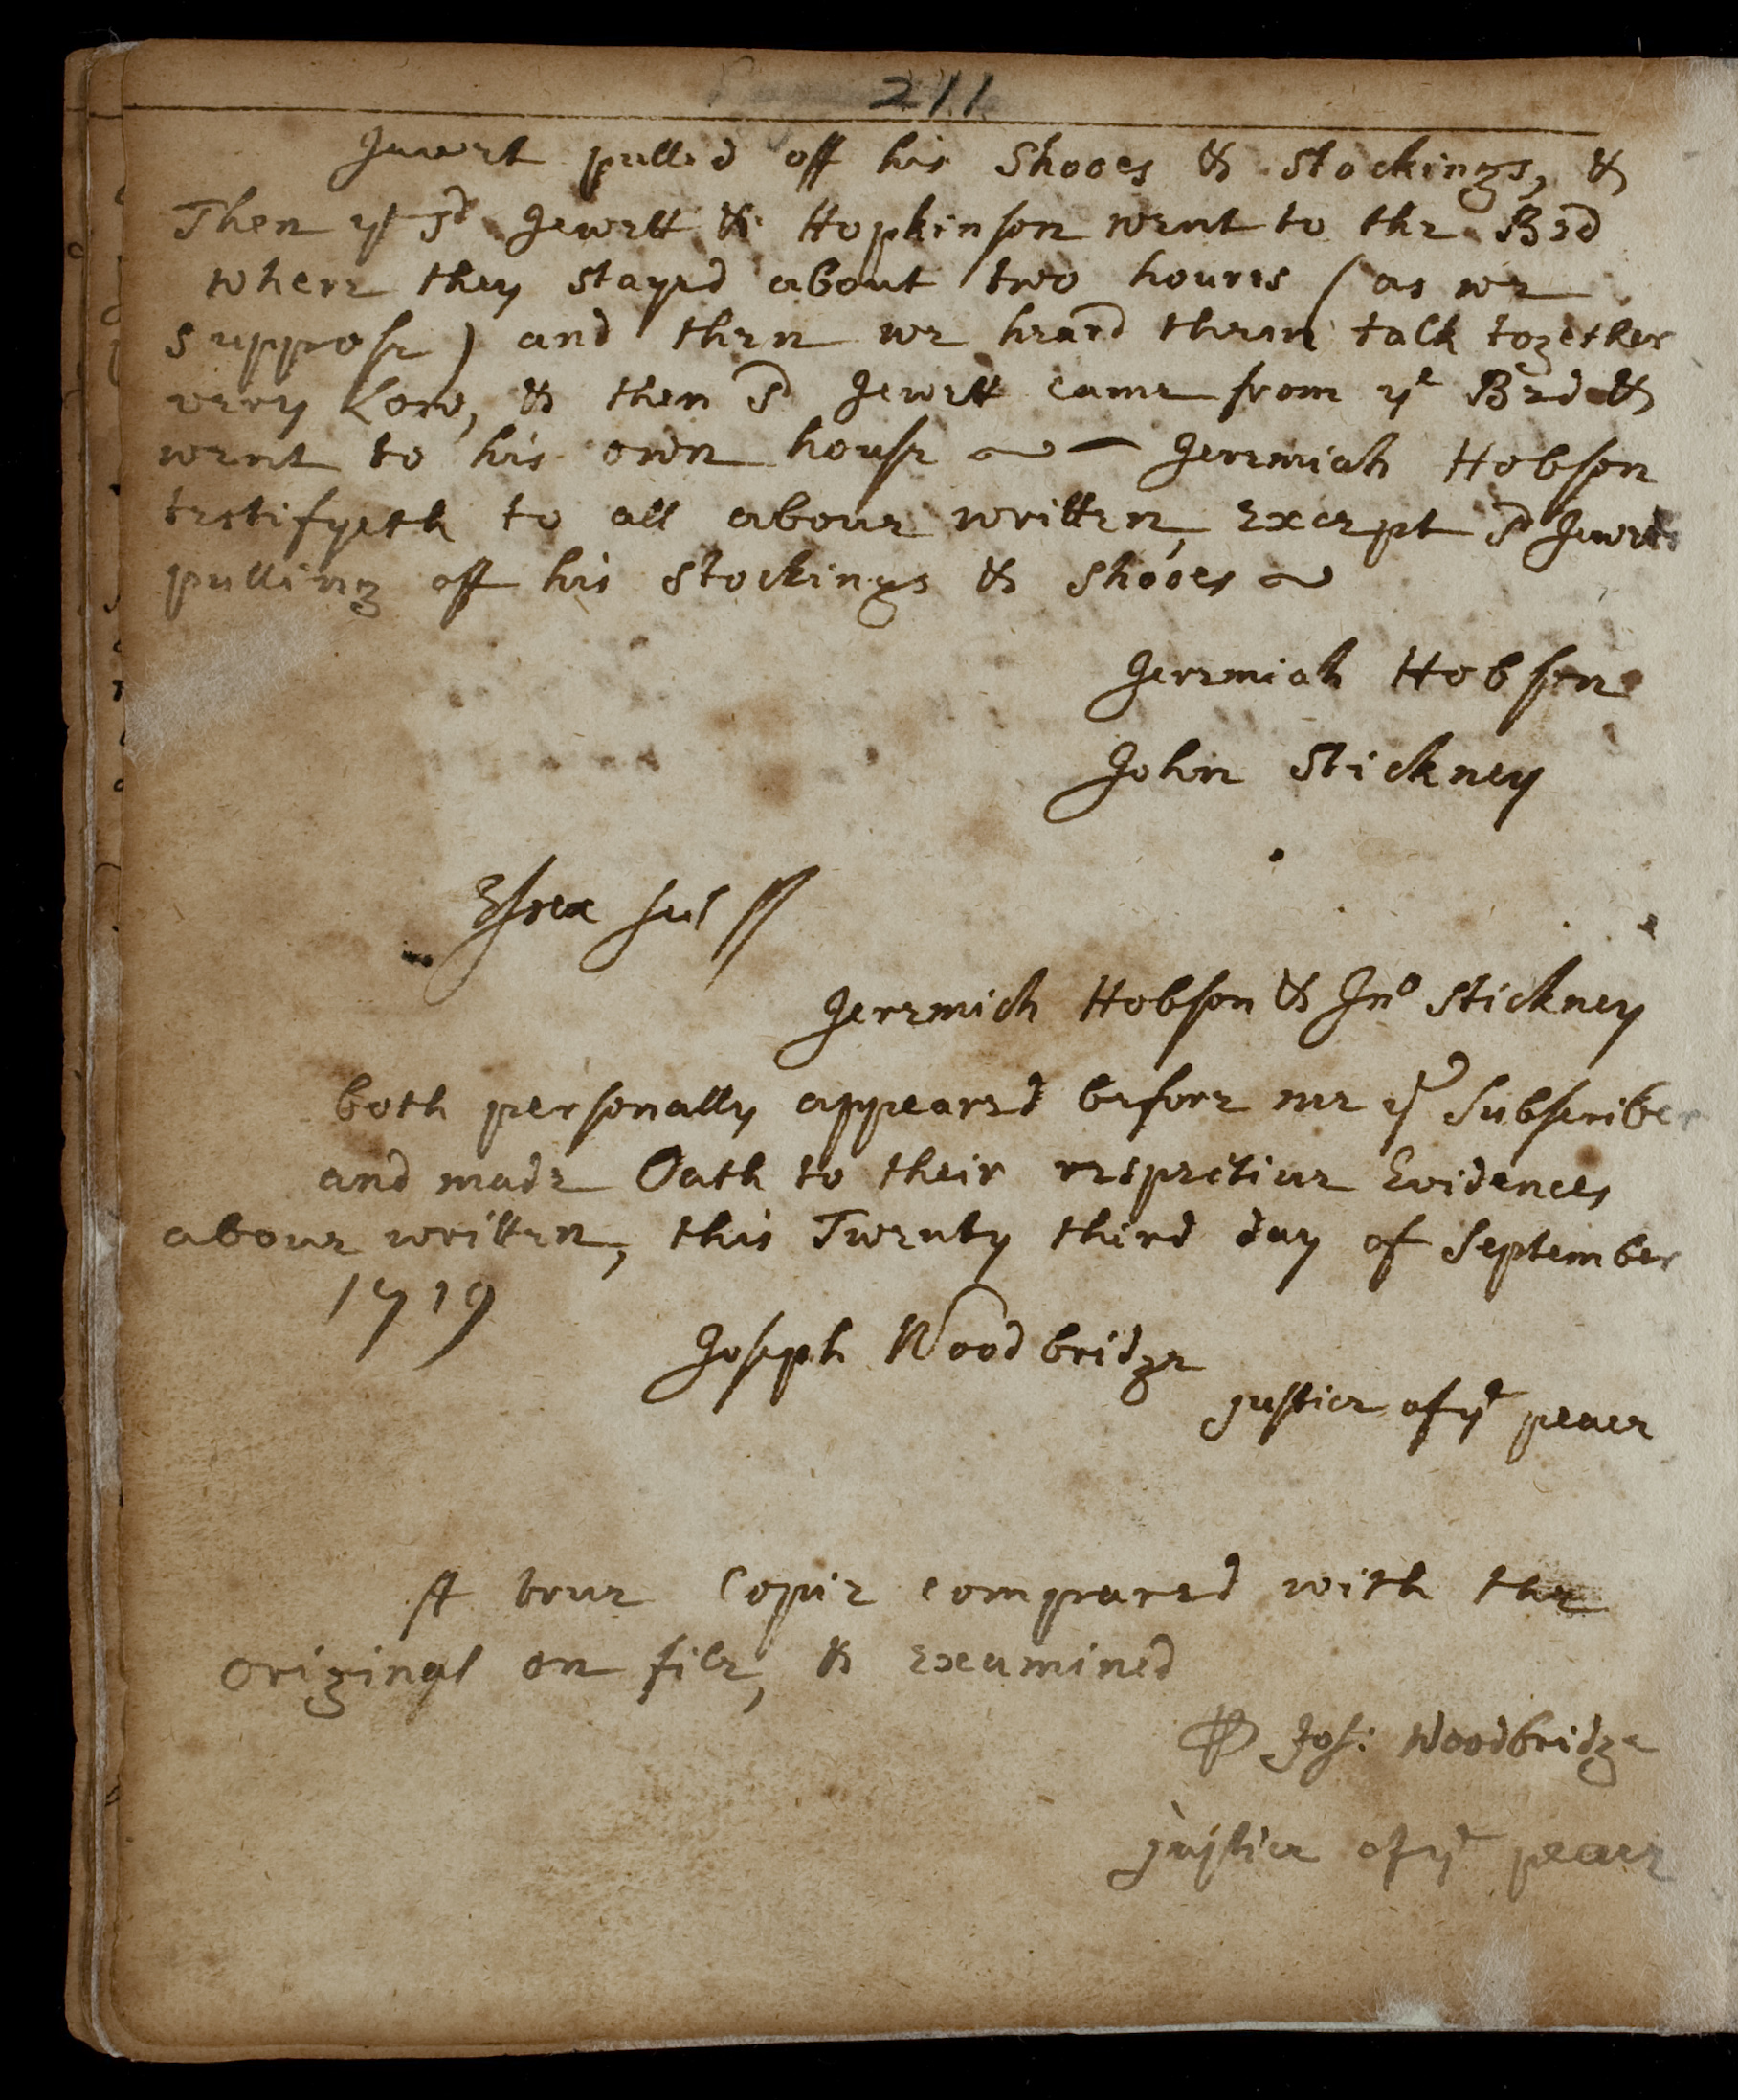 211
Jewet pulled off his Shooes & Stockings, &
Then ye sd Jewett & Hopkinson went to the Bed
where they stayed about two houres (as we
suppose) and then we heard them talk together
very Low, & then sd Jewett came from ye Bed &
went to his own house — Jeremiah Hobson
testifyeth to all aboue written, Except sd Jewets
pulling off his Stockings & Shooes
Jeremiah Hobson
John Stickney
Essex ss
Jeremiah Hobson & Jno Stickney
both personally appeared before me ye Subscriber
and made Oath to their respectiue Evidences
aboue written, this Twenty third day of September
1719
Joseph Woodbridge
justice of ye peace
A true Copie compeared with the
original on file, & Examined
Jos: Woodbridge
justice of ye peace